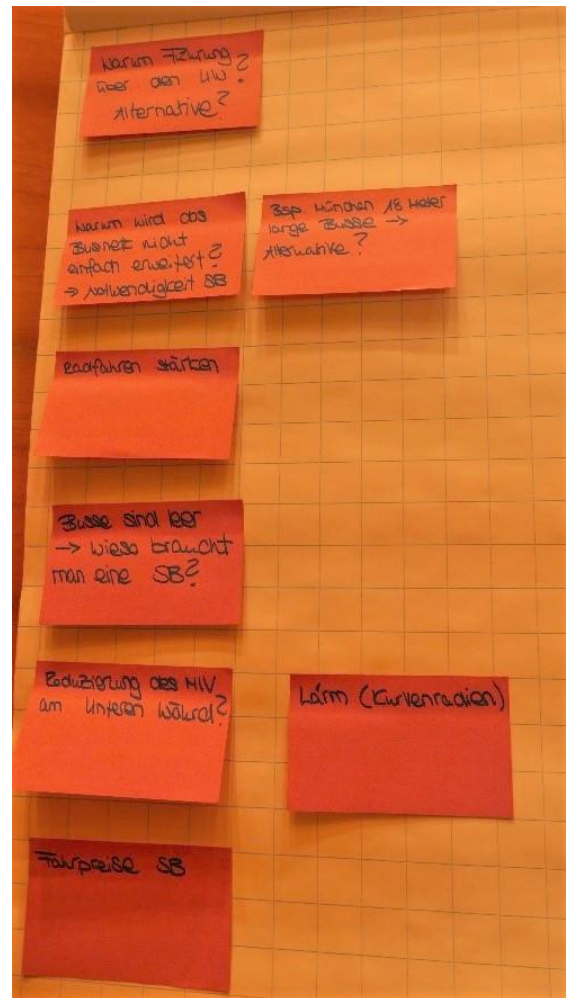 Warum Führung
über den UW?
Alternative?
Warum wird das
Busnetz nicht
einfach erweitert?
→ Notwendigkeit SB
Bsp. München 18 Meter
lange Busse →
Alternative?
Radfahren stärken
Busse sind leer
→ Wieso braucht
man eine SB?
Reduzierung des MIV
am Unteren Wöhrd?
Lärm (Kurvenradien)
Fahrpreise SB